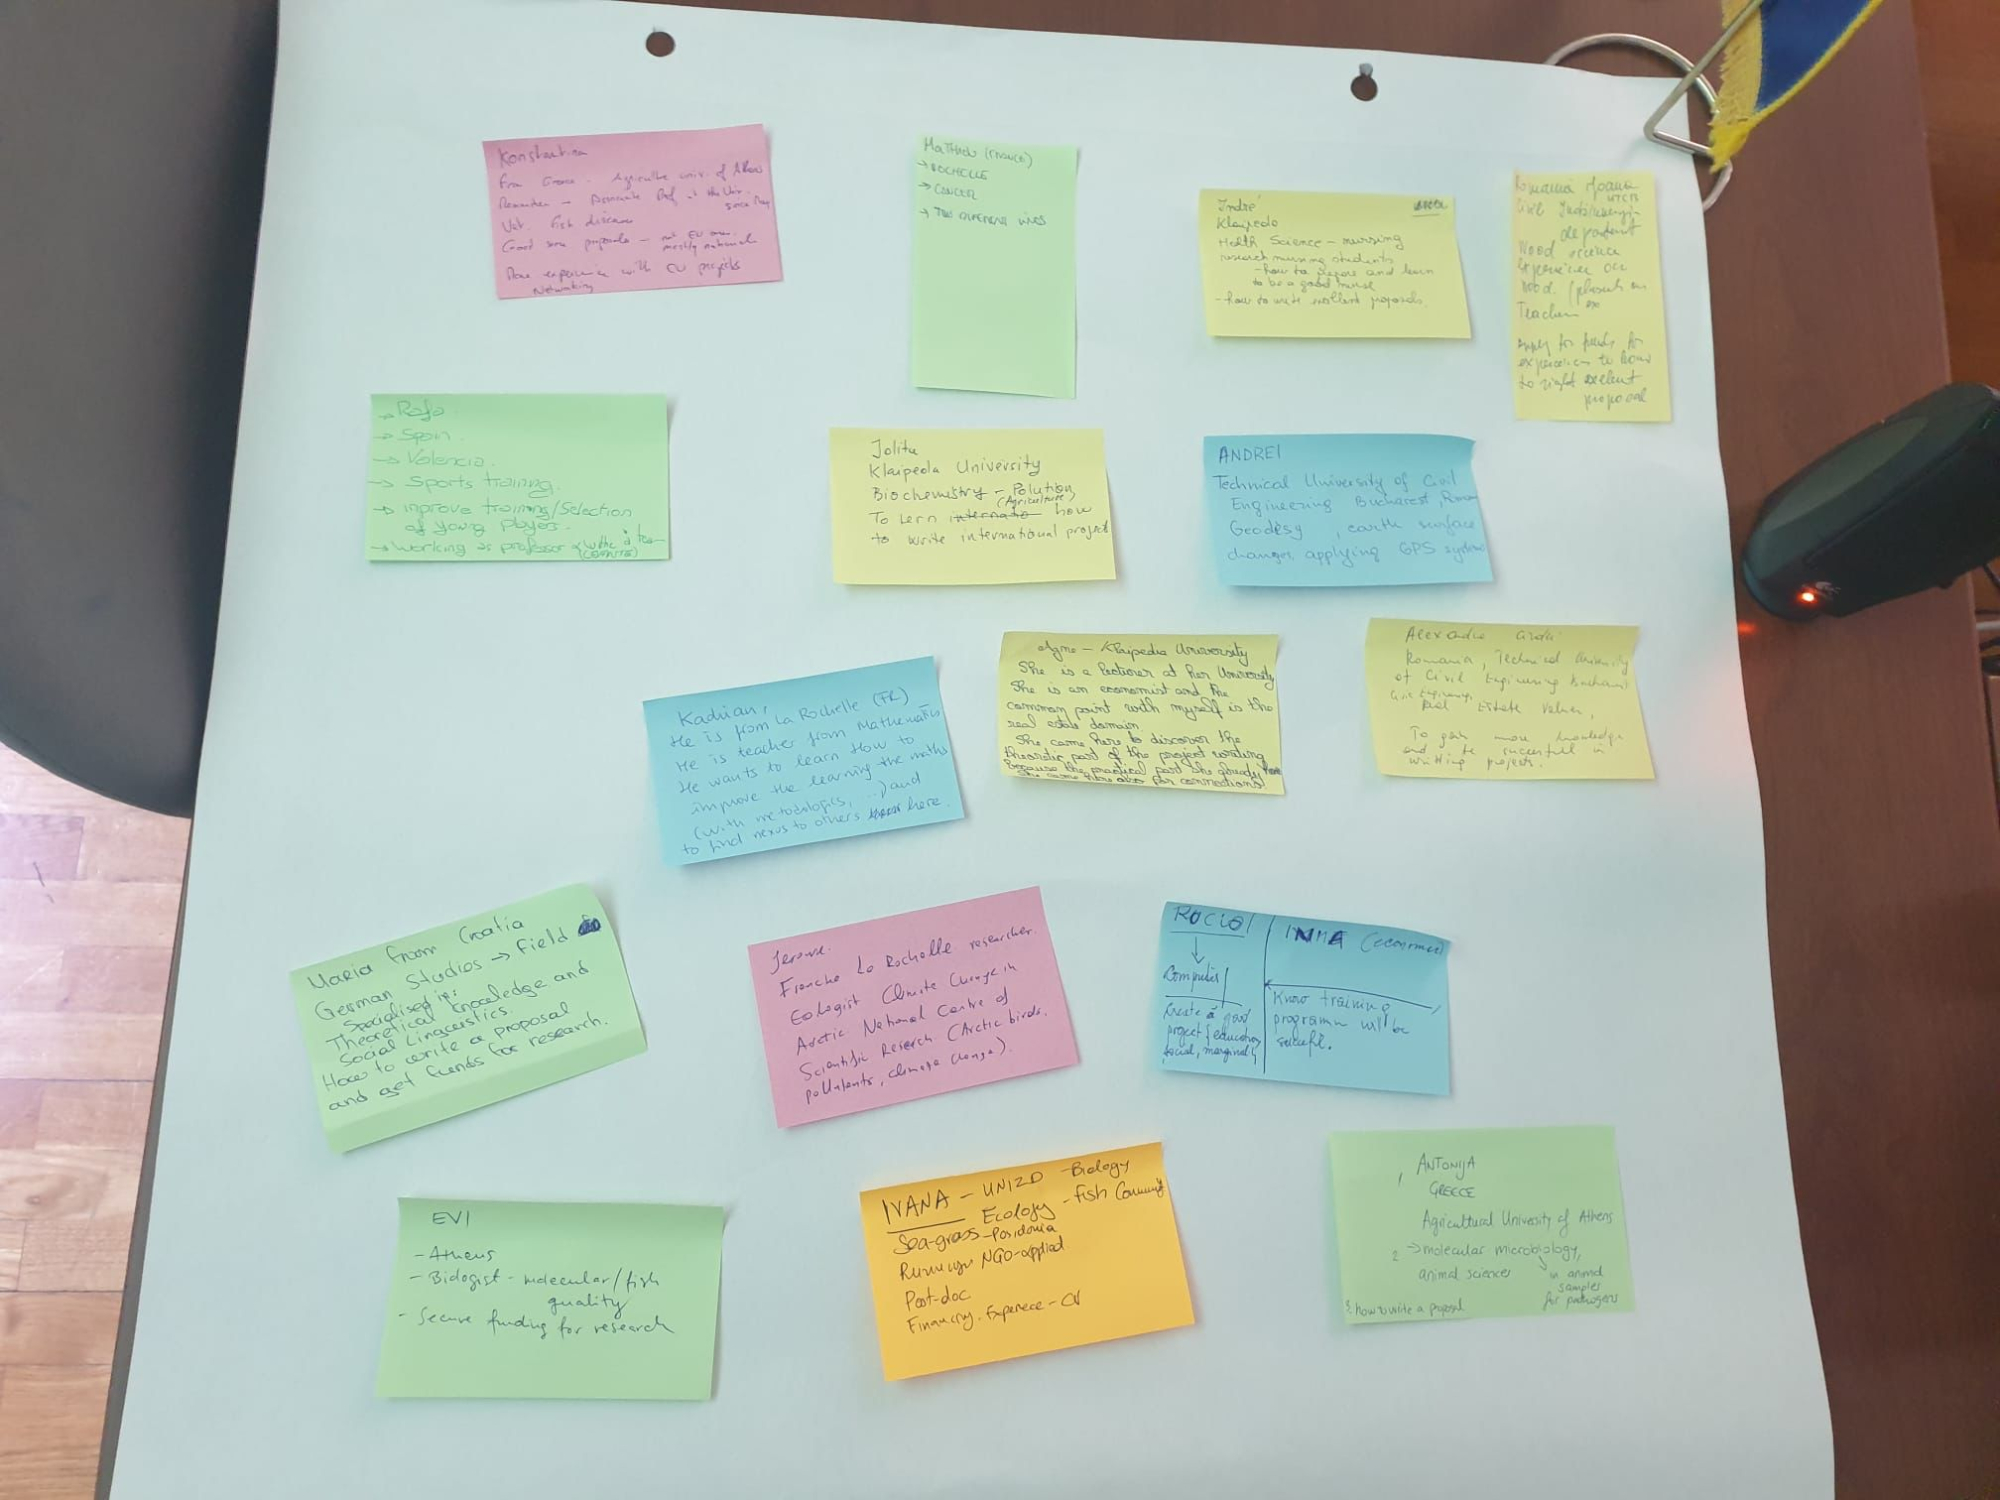 Konstantina
From Greece. Agriculture univ. of
Associate Prof. at the Univ.
Vet. Fish disease
Good some proposals – not EU
mostly national
More experience with EU projects
Networking
MATHIEU (FRANCE)
→ ROCHELLE
→ CANCER
→ TWO DIFFERENT LIVES
Indré
Klaipeda
Health Science – nursing
research nursing students
- how to prepare and learn
to be a good nurse
- how to write excellent proposals.
Romania Ioana
UTCB
Civil
department
Wood science
Experience on
wood.
Teacher
Apply for funds for
experience to how
to right exelent
proposal
→ Rafa
→ Spain
→ Valencia.
→ Sports training.
→ inprove training/Selection
of young players.
→ working as professor
Jolita
Klaipeda University
Biochemistry – Polution
(Agriculture)
To lern internatio how
to write international project
ANDREI
Technical University of Civil
Engineering Bucharest, Roma
Geodesy, earth surface
changes applying GPS system
Kadrian,
He is from La Rochelle (FR)
He is teacher from Mathematics
He wants to learn How to
improve the learning the maths
(with metodologies, ...) and
to find nexus to others here.
Agne – Klaipedia University
She is a lecturer at her University
She is an economist and the
common point with myself is the
real estate domain
She came here to discover the
theoretic part of the project writing
because the practical part she already
She came here also for connections.
Alexandru
Romania, Technical University
of Civil Engineering Bucharest
Civil Engineering,
Real Estate Valuer,
To gain more knowledge
and write successful in
writting projects.
Maria from Croatia
German Studies → Field
Specialised in:
Theoretical Knowledge and
Social Linguistics.
How to write a proposal
and get funds for research.
Jerome.
Franche La Rochelle researcher.
Ecologist Climate Change in
Arctic National Centre of
Scientific Reserch (Arctic birds,
pollutants, climate change).
ROCIO
↓
Computis
Create a good
project & education
social, marginal
INMA (economics)
Know training
programm will be
EVI
- Athens
- Biologist - molecular/fish
quality
- Secure funding for research
IVANA – UNIZD - Biology
Ecology - fish Community
Sea-grass - Posidonia
NGO-applied
Post-doc
Financing. Experiece - CV
1, ANTONIJA
GREECE
Agricultural University of Athens
2 → molecular microbiology,
animal sciences in animal
samples
for pathogens
3. how to write a proposal